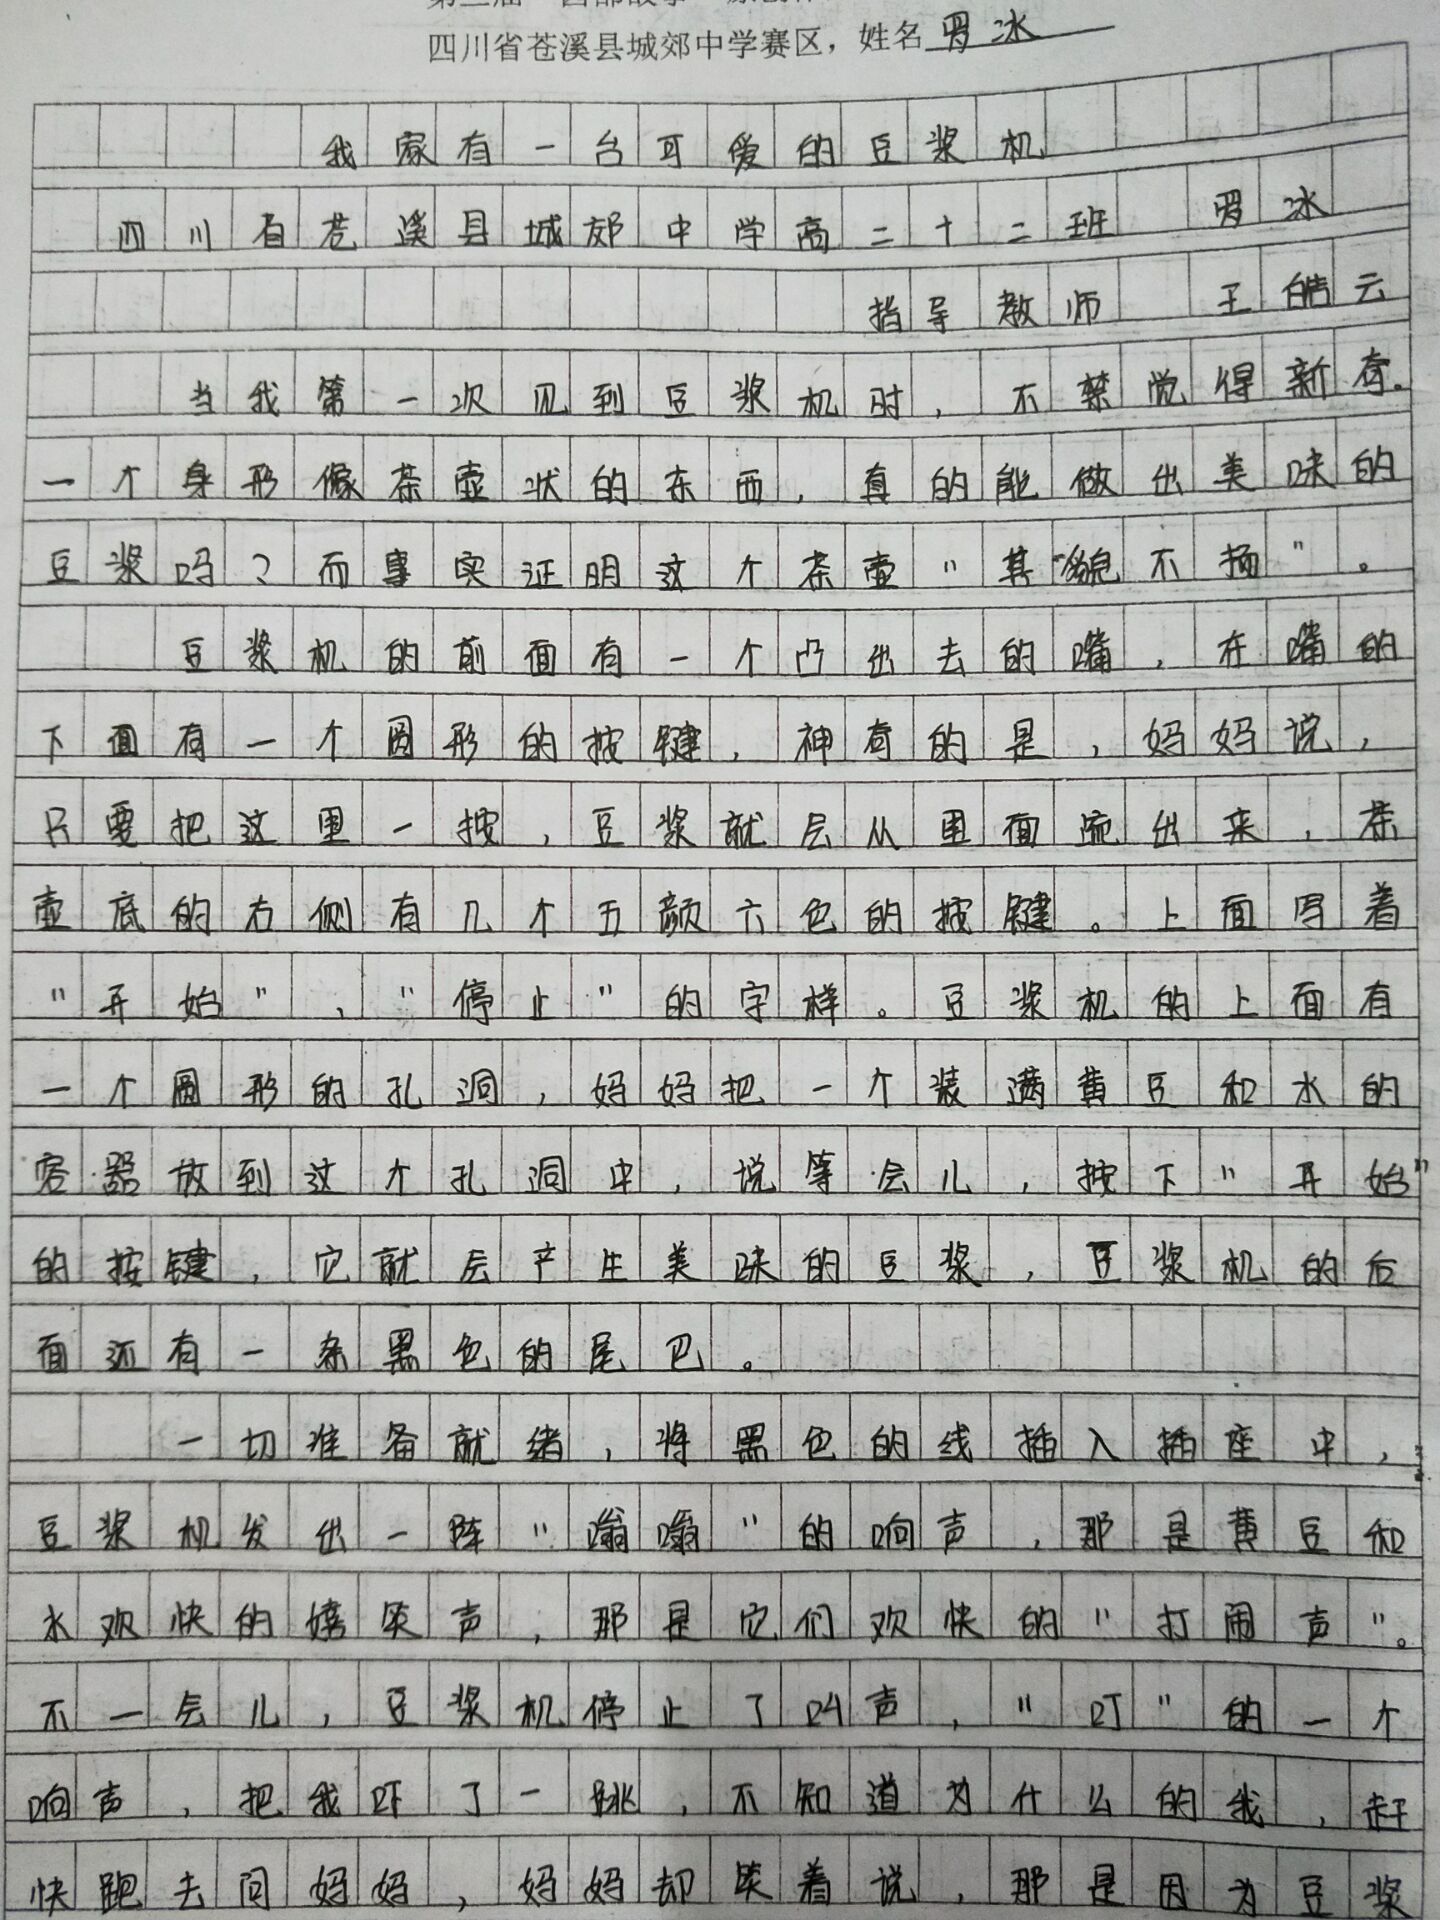 四川省苍溪县城郊中学赛区，姓名 罗冰
我家有一台可爱的豆浆机
四川省苍溪县城郊中学高二十二班 罗冰
指导教师 王皓云
当我第一次见到豆浆机时，不禁觉得新奇。
一个身形像茶壶状的东西，真的能做出美味的
豆浆吗？而事实证明这个茶壶“其“貌不扬”。
豆浆机的前面有一个凸出去的嘴，在嘴的
下面有一个圆形的按键，神奇的是，妈妈说，
只要把这里一按，豆浆就会从里面流出来，茶
壶底的右侧有几个五颜六色的按键。上面写着
“开始”，“停止”的字样。豆浆机的上面有
一个圆形的孔洞，妈妈把一个装满黄豆和水的
容器放到这个孔洞中，说等会儿，按下“开始”
的按键，它就会产生美味的豆浆，豆浆机的后
面还有一条黑色的尾巴。
一切准备就绪，将黑色的线插入插座中，
豆浆机发出一阵“嗡嗡”的响声，那是黄豆和
水欢快的嬉笑声，那是它们欢快的“打闹声”。
不一会儿，豆浆机停止了叫声，“叮”的一个
响声，把我吓了一跳，不知道为什么的我，赶
快跑去问妈妈，妈妈却笑着说，那是因为豆浆